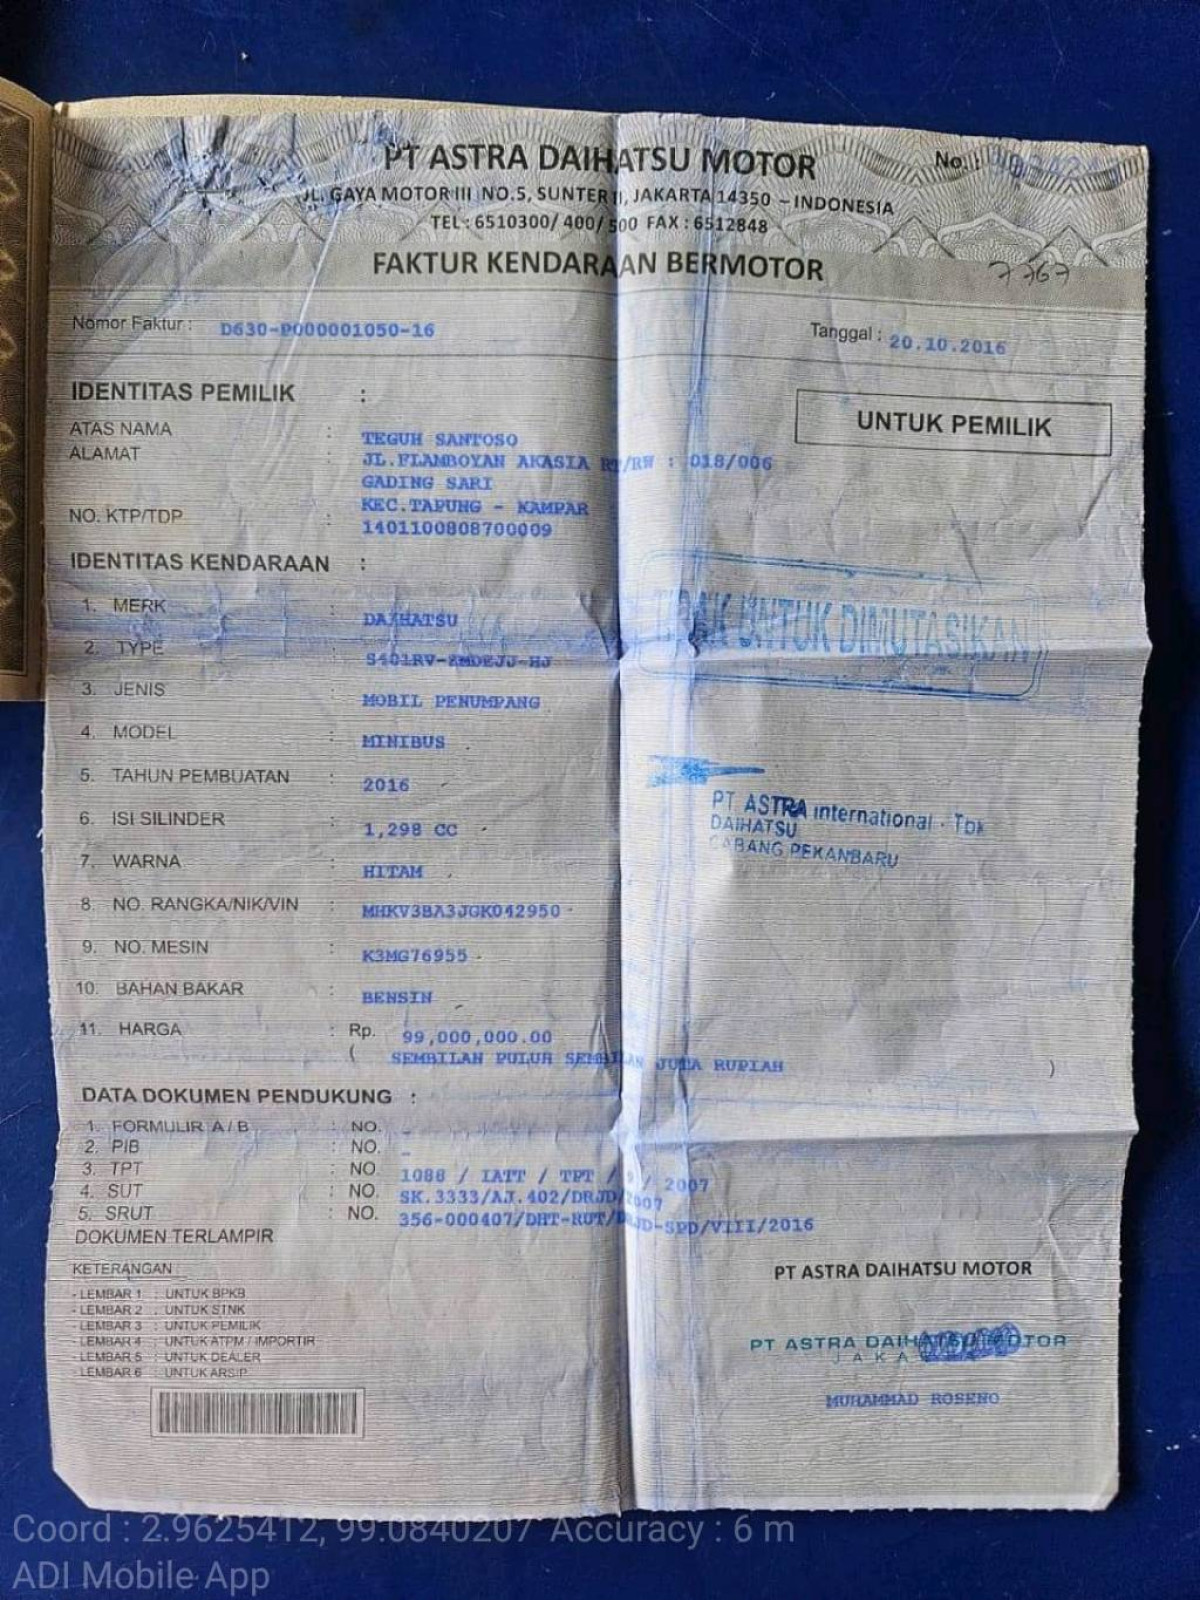 PT ASTRA DAIHATSU MOTOR
No. :
JL. GAYA MOTOR III NO.5, SUNTER II, JAKARTA 14350 – INDONESIA
TEL : 6510300/ 400/ 500 FAX : 6512848
FAKTUR KENDARAAN BERMOTOR
7767
Nomor Faktur : D630-P000001050-16
Tanggal : 20.10.2016
IDENTITAS PEMILIK :
UNTUK PEMILIK
ATAS NAMA : TEGUH SANTOSO
ALAMAT : JL.FLAMBOYAN AKASIA RT/RW : 018/006
GADING SARI
KEC.TAPUNG - KAMPAR
NO. KTP/TDP : 1401100808700009
IDENTITAS KENDARAAN :
1. MERK : DAIHATSU
2. TYPE : S401RV-ZMDEJJ-HJ
3. JENIS : MOBIL PENUMPANG
4. MODEL : MINIBUS
5. TAHUN PEMBUATAN : 2016
6. ISI SILINDER : 1,298 CC
7. WARNA : HITAM
8. NO. RANGKA/NIK/VIN : MHKV3BA3JGK042950
9. NO. MESIN : K3MG76955
10. BAHAN BAKAR : BENSIN
11. HARGA : Rp. 99,000,000.00
( SEMBILAN PULUH SEMBILAN JUTA RUPIAH )
TIDAK UNTUK DIMUTASIKAN
PT. ASTRA international - Tbk
DAIHATSU
CABANG PEKANBARU
DATA DOKUMEN PENDUKUNG :
1. FORMULIR A / B : NO. -
2. PIB : NO. -
3. TPT : NO. 1088 / IATT / TPT / 9 / 2007
4. SUT : NO. SK.3333/AJ.402/DRJD/2007
5. SRUT : NO. 356-000407/DHT-RUT/DRJD-SPD/VIII/2016
DOKUMEN TERLAMPIR
KETERANGAN
- LEMBAR 1 : UNTUK BPKB
- LEMBAR 2 : UNTUK STNK
- LEMBAR 3 : UNTUK PEMILIK
- LEMBAR 4 : UNTUK ATPM / IMPORTIR
- LEMBAR 5 : UNTUK DEALER
- LEMBAR 6 : UNTUK ARSIP
PT ASTRA DAIHATSU MOTOR
PT ASTRA DAIHATSU MOTOR
MUHAMMAD ROSENO
Coord : 2.9625412, 99.0840207 Accuracy : 6 m
ADI Mobile App